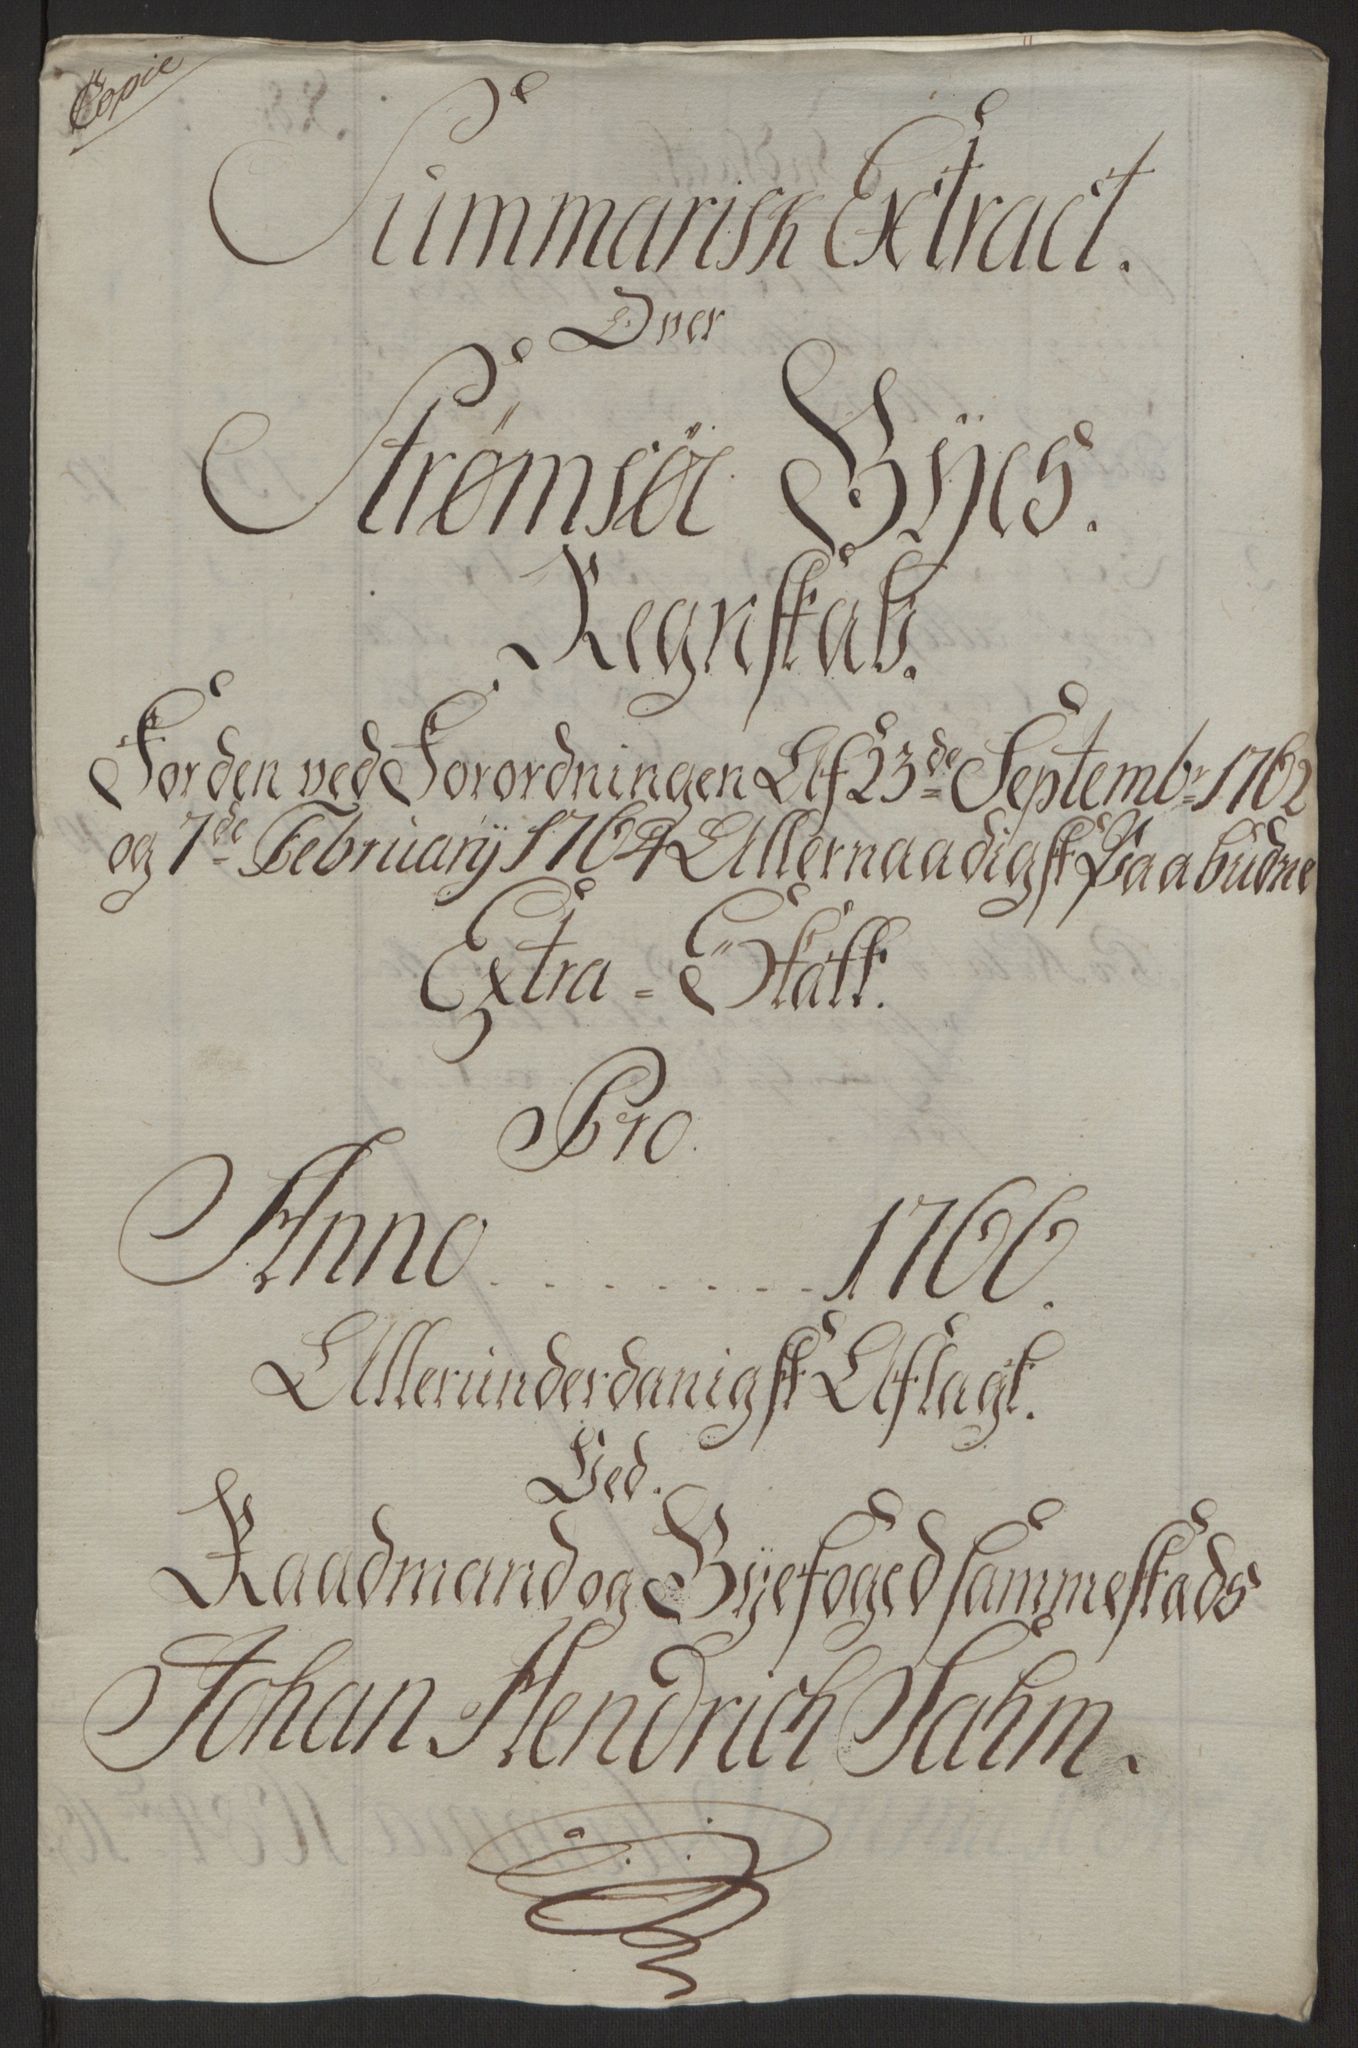 Copie
Summarisk Extract.
Over
Strømsøe Byes.
Regnskab.
For den ved Forordningen Af 23de Septembr 1762
og 7de Februarÿ 1764 Allernaadigst Paabudne
Extra-Skatt.
Pro.
Anno.........1766.
Allerunderdanigst Aflagt.
Ved.
Raadmand og Byefoged sammestæds
Johan Hendrich Fahm.